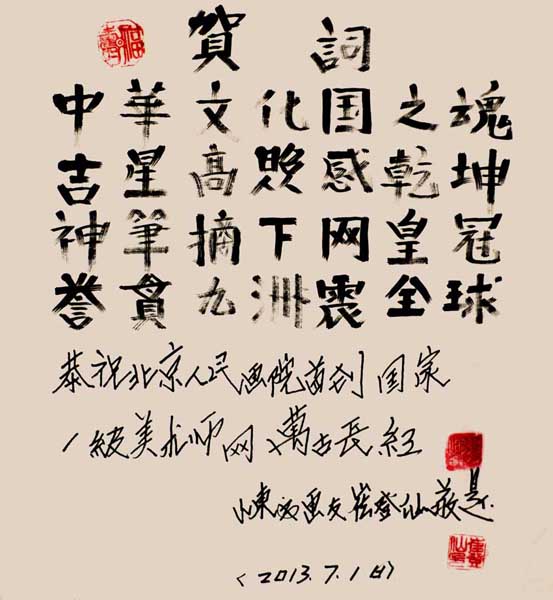 賀詞
中華文化国之魂
吉星高照感乾坤
神筆摘下网皇冠
誉贯九洲震全球
恭祝北京人民画院首创国家
一级美术师网万古長红
山東 画友崔登仙敬题
〈2013.7.1日〉